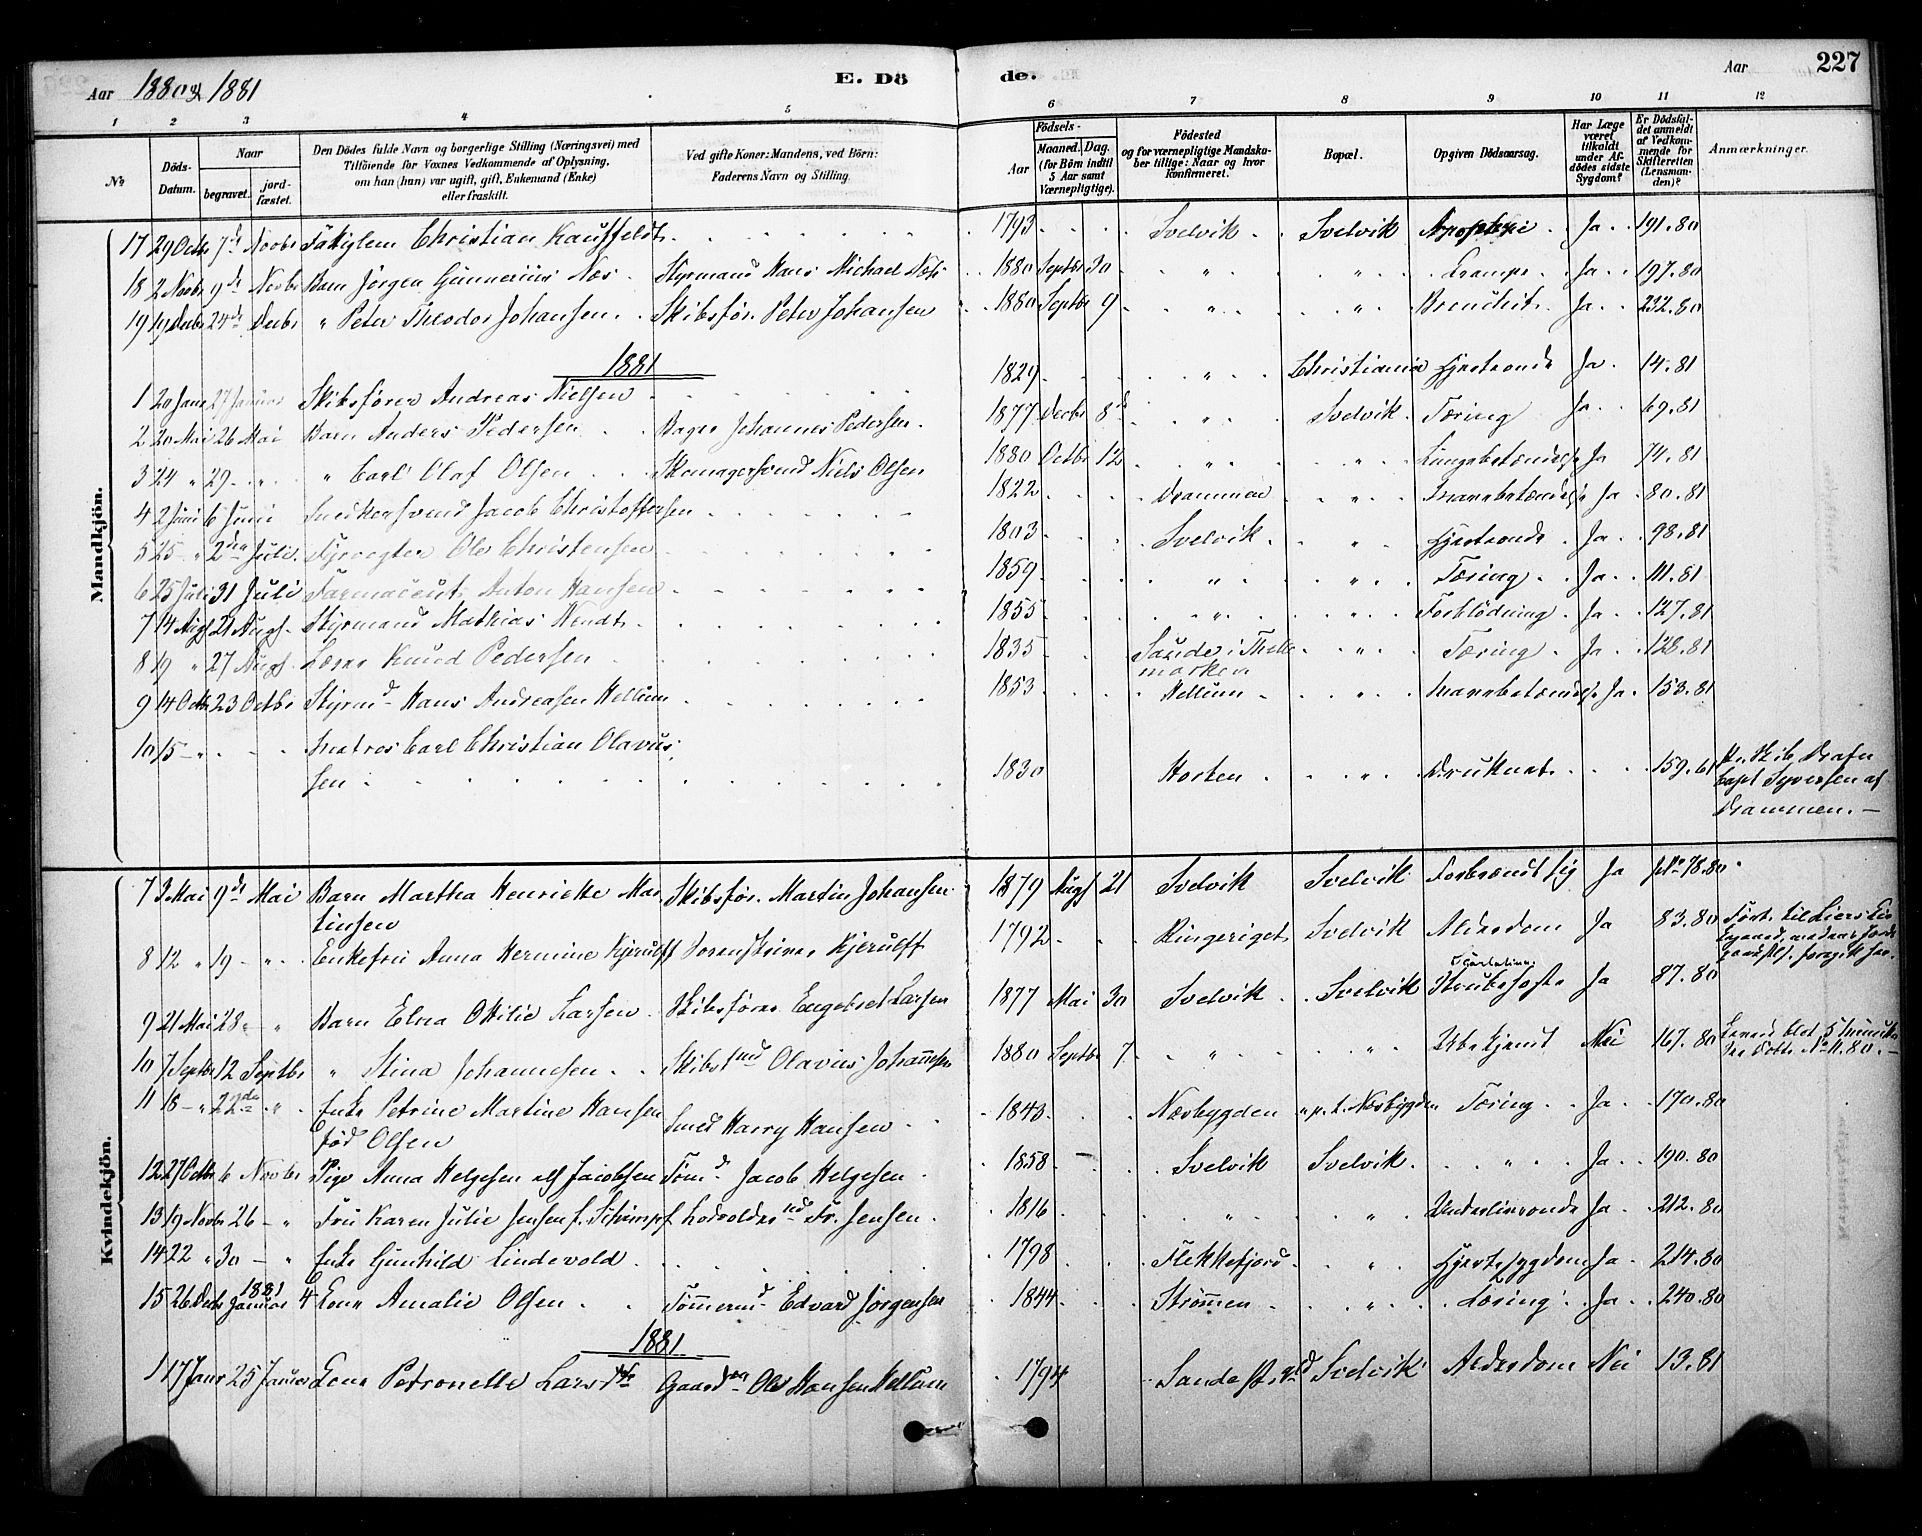 Aar 1880 & 1881 E. Dö de. Aar 227
1 2 3 4 5 6 7 8 9 10 11 12
No Döds-Datum. Naar begravet. jordfæstet. Den Dödes fulde Navn og borgerlige Stilling (Næringsvei) med Tilföiende for Voxnes Vedkommende af Oplysning, om han (hun) var ugift, gift, Enkemand (Enke) eller fraskilt. Ved gifte Koner: Mandens, ved Börn: Faderens Navn og Stilling. Födsels- Aar Maaned. Dag. (for Börn indtil 5 Aar samt Værnepligtige). Födested og for værnepligtige Mandskaber tillige: Naar og hvor konfirmeret. Bopæl. Opgiven Dödsaarsag. Har Læge været tilkaldt under Afdödes sidste Sygdom? Er Dödsfaldet anmeldt af Vedkommende for Skifteretten (Lensmanden)? Anmærkninger.
Mandkjön.
17 29 Octbr 7de Novbr Christian Kauffeldt 1793 Svelvik Svelvik Ja 191.80
18 2 Novbr 9de Novbr Barn Jörgen Gunnerius Næs Styrmand Hans Michael Næss 1880 Septbr 30 " " Krampe Ja 197.80
19 19 Decbr 24de Decbr " Peter Theodor Johansen Skibsför. Peter Johansen 1880 Septbr 9 " " Bronchit Ja 232.80
1881
1 20 Janr 27 Januar Skibsförer Andreas Nielsen 1829 " Christiania Hjerteonde Ja 14.81
2 20 Mai 26 Mai Barn Anders Pedersen Bager Johannes Pedersen 1877 Decbr 8de " Svelvik Tæring Ja 69.81
3 24 " 29 " " Carl Olaf Olsen Skomagersvend Niels Olsen 1880 Octbr 12 " " Lungebetændelse Ja 74.81
4 2 Juni 6 Juni Snedkersvend Jacob Christoffersen 1822 Drammen " Mavebetændelse Ja 80.81
5 25 " 2den Juli Fyrvogter Ole Christensen 1803 Svelvik " Hjerteonde Ja 98.81
6 25 Juli 31 Juli Farmaceut Anton Hansen 1859 " " Tæring Ja 111.81
7 14 Augs. 21 Augs. Styrmand Mathias Wendt 1855 " " Forblödning Ja 127.81
8 19 " 27 Augs. Lærer Knud Pedersen 1835 Saude i Thelemarken " Tæring Ja 128.81
9 14 Octbr 23 Octbr Styrmd Hans Andreasen Hellum 1853 Hellum " Mavebetændelse Ja 153.81
10 15 " Matros Carl Christian Olavussen 1830 Horten " Druknet 159.61 Capt Syversen af Drammen.
Kvindekjön.
7 3 Mai 9de Mai Barn Martha Henrikke Martinsen Skibsför. Martin Johansen 1879 Augs 21 Svelvik Svelvik Forbrændt sig Ja No 78.80
8 12 " 19 " Enkefru Anna Hermine Kjerulff Sorenskriver Kjerulff 1792 Ringeriget Svelvik Alderdom Ja 83.80 Fört til Liers
9 21 Mai 28 " Barn Elna Otilie Larsen Skibsförer Engebret Larsen 1877 Mai 30 Svelvik Svelvik Strubehoste Ja 87.80
10 7 Septbr 12 Septbr " Stina Johannesen Skibstmd Olavius Johannesen 1880 Septbr 7 " " Ubekjendt Nei 167.80 Levede blot 5 Minutter No 11.80.
11 18 " 22de " Enke Petrine Martine Hansen föd Olsen Smed Harry Hansen 1843 Næsbygden " p.t. Næsbygden Tæring Ja 170.80
12 27 Octbr 6 Novbr Pige Anna Helgesen alf Jacobsen Tömd Jacob Helgesen 1858 Svelvik Svelvik " Ja 190.80
13 19 Novbr 26 " Fru Karen Julie Jensen f. Schimpf Fr. Jensen 1816 " " Underlivsonde Ja 212.80
14 22 " 30 " Enke Gunhild Lindevold 1798 Flekkefjord " Hjertesygdom Ja 214.80
15 26 Decbr 1881 Januar 4 Kone Amalie Olsen Tömmermd Edvard Jörgensen 1844 Strömmen " Tæring Ja 240.80
1881
1 17 Janr 25 Januar Kone Petronelle Larsdtr Gaardmd Ole Hansen Hellum 1794 Sande Svelvik Alderdom Nei 13.81